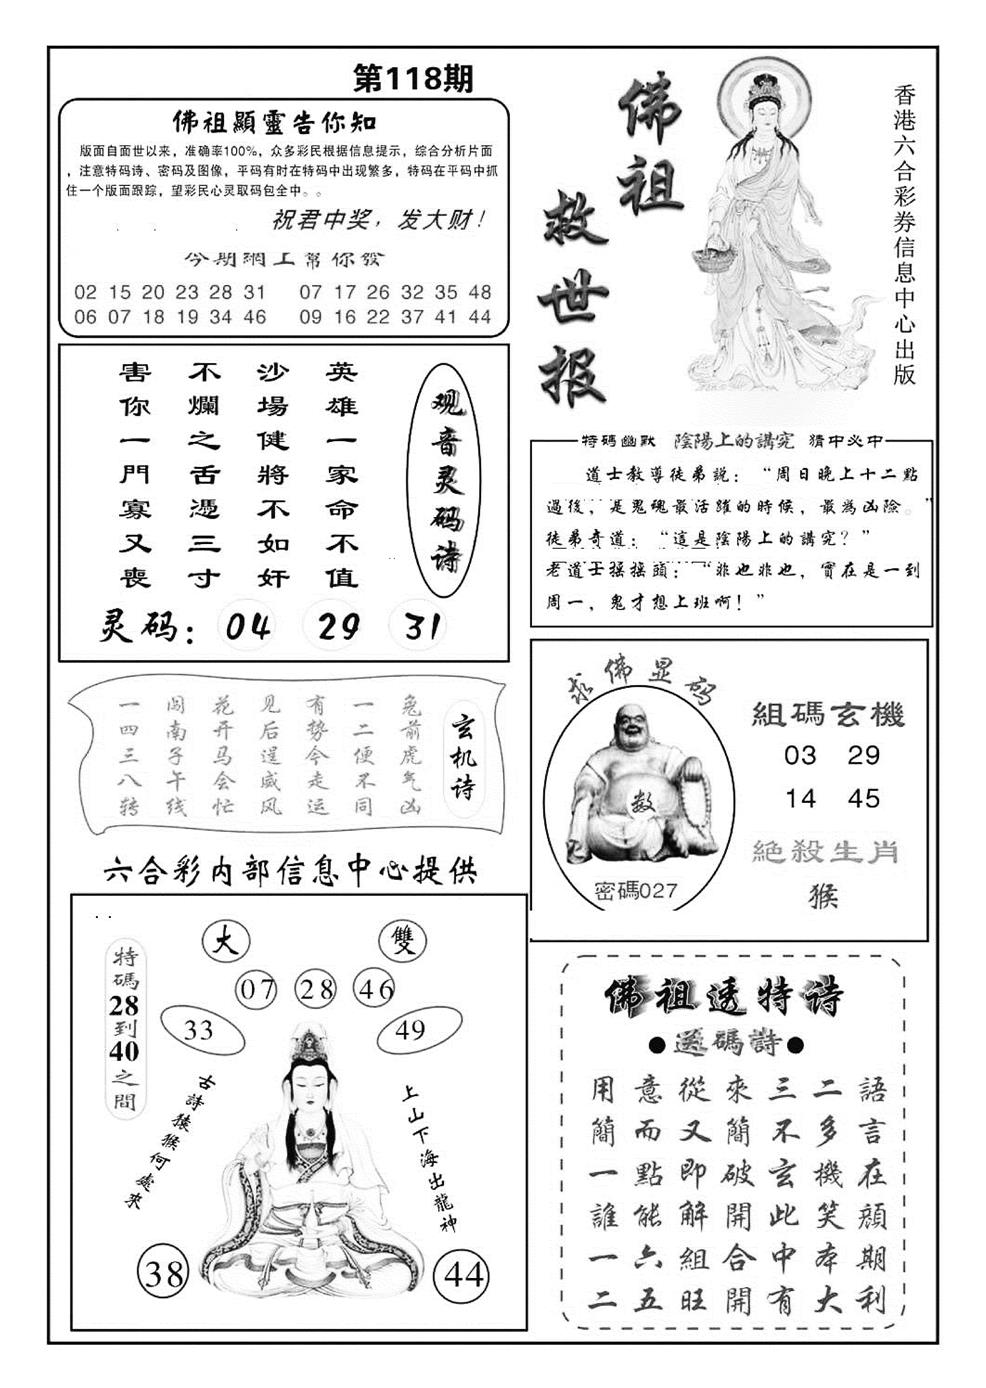 第118期
佛祖顯靈告你知
版面自面世以来，准确率100%，众多彩民根据信息提示，综合分析片面
，注意特码诗、密码及图像，平码有时在特码中出现繁多，特码在平码中抓
住一个版面跟踪，望彩民心灵取码包全中。。
祝君中奖，发大财！
今期網工幫你發
02 15 20 23 28 31 07 17 26 32 35 48
06 07 18 19 34 46 09 16 22 37 41 44
佛祖
救世报
香港六合彩券信息中心出版
观音灵码诗
英雄一家命不值
沙場健將不如奸
不爛之舌憑三寸
害你一門寡又喪
灵码：04 29 31
特碼幽默 陰陽上的講究 猜中必中
道士教導徒弟説：“周日晚上十二點
過後，是鬼魂最活躍的時候，最為凶險。”
徒弟奇道：“這是陰陽上的講究？”
老道士摇摇頭：“非也非也，實在是一到
周一，鬼才想上班啊！”
玄机诗
兔前虎气凶
一二便不同
有势今走运
见后逞威风
花开马会忙
闯南子午线
一四三八转
求佛显码
数
密碼027
組碼玄機
03 29
14 45
絕殺生肖
猴
六合彩内部信息中心提供
大
雙
07 28 46
33
49
特碼28到40之間
古詩猿猴何處來
上山下海出龍神
38
44
佛祖透特诗
●透碼詩●
用意從來三二語
簡而又簡不多言
一點即破玄機在
誰能解開此笑顔
一六組合中本期
二五旺開有大利